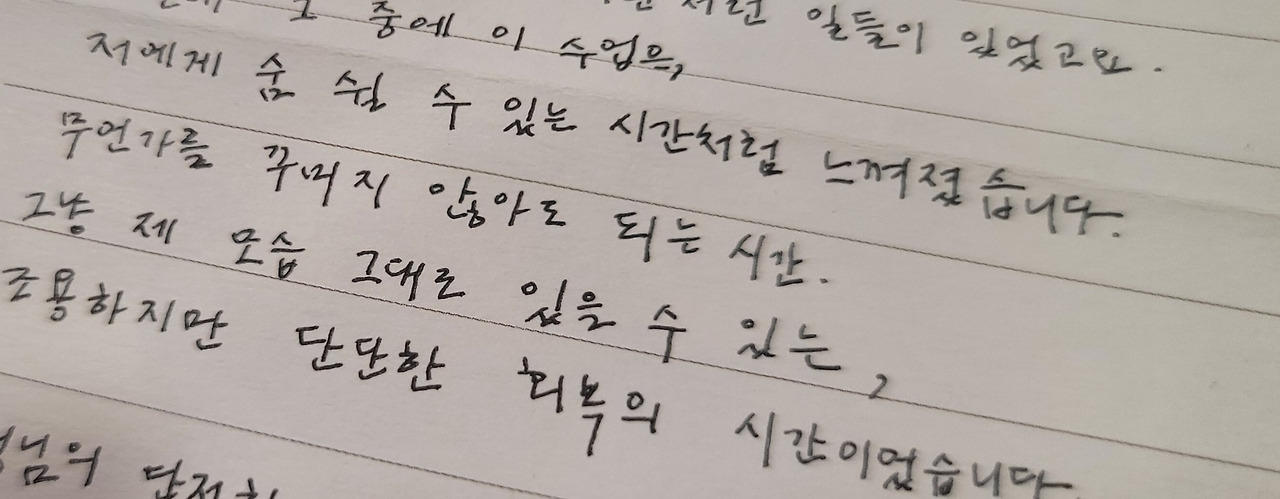 일들이 있었고요.
그 중에 이 수업은,
저에게 숨 쉴 수 있는 시간처럼 느껴졌습니다.
무언가를 꾸미지 않아도 되는 시간.
그냥 제 모습 그대로 있을 수 있는,
조용하지만 단단한 회복의 시간이었습니다
님의